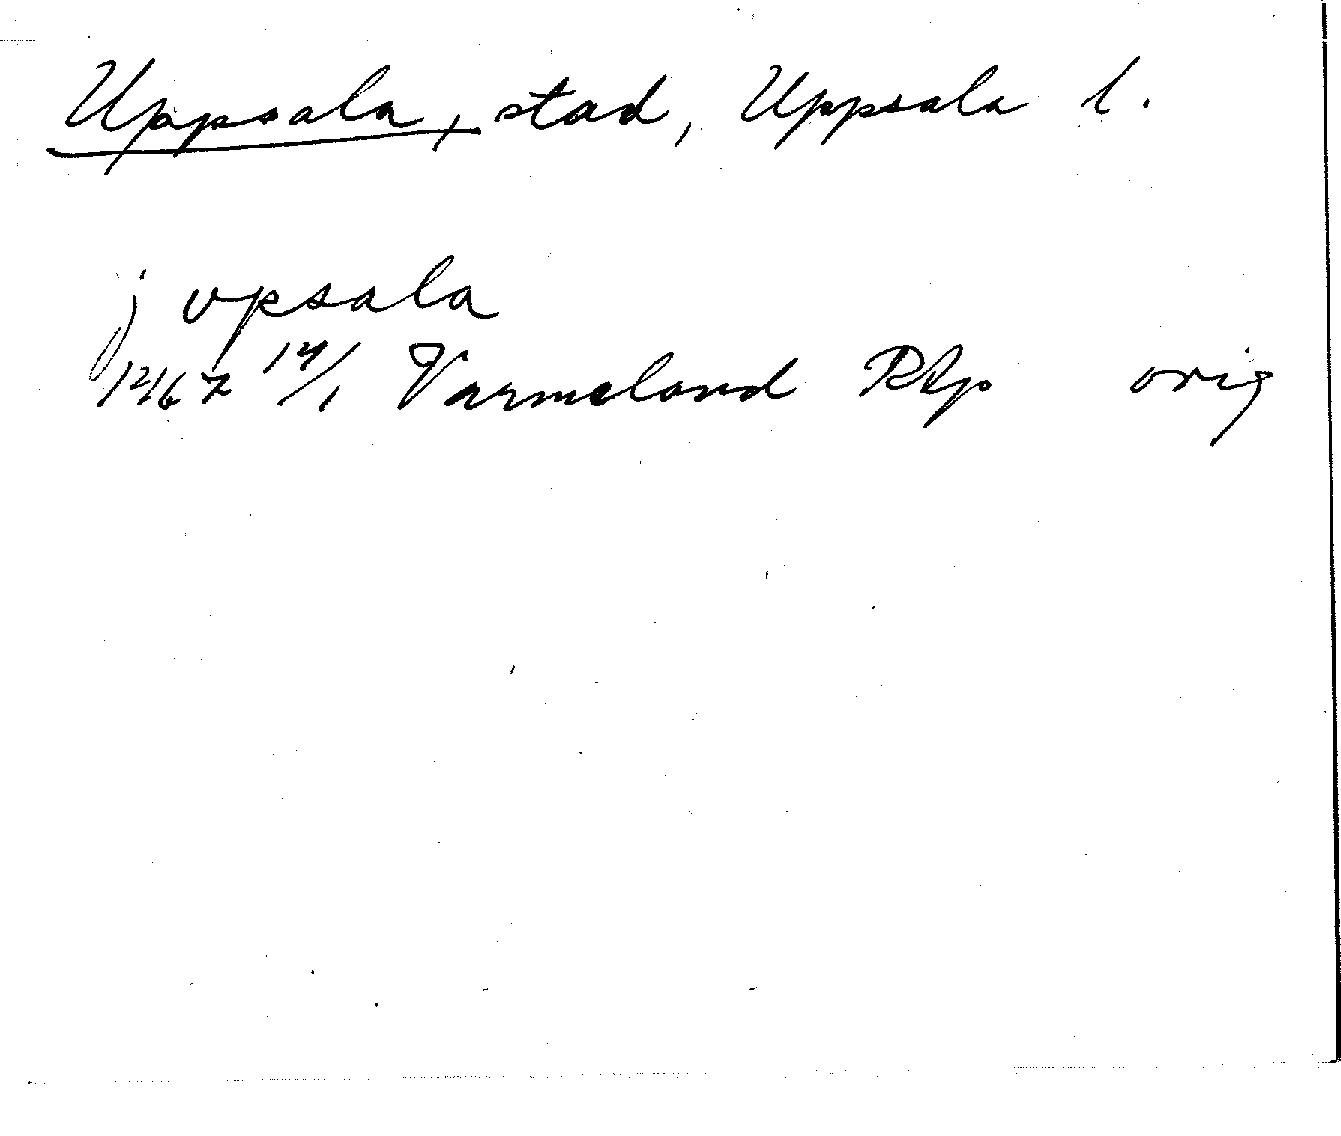 Uppsala, stad, Uppsala l.
j vpsala
1467 14/1 Varmeland RAp orig